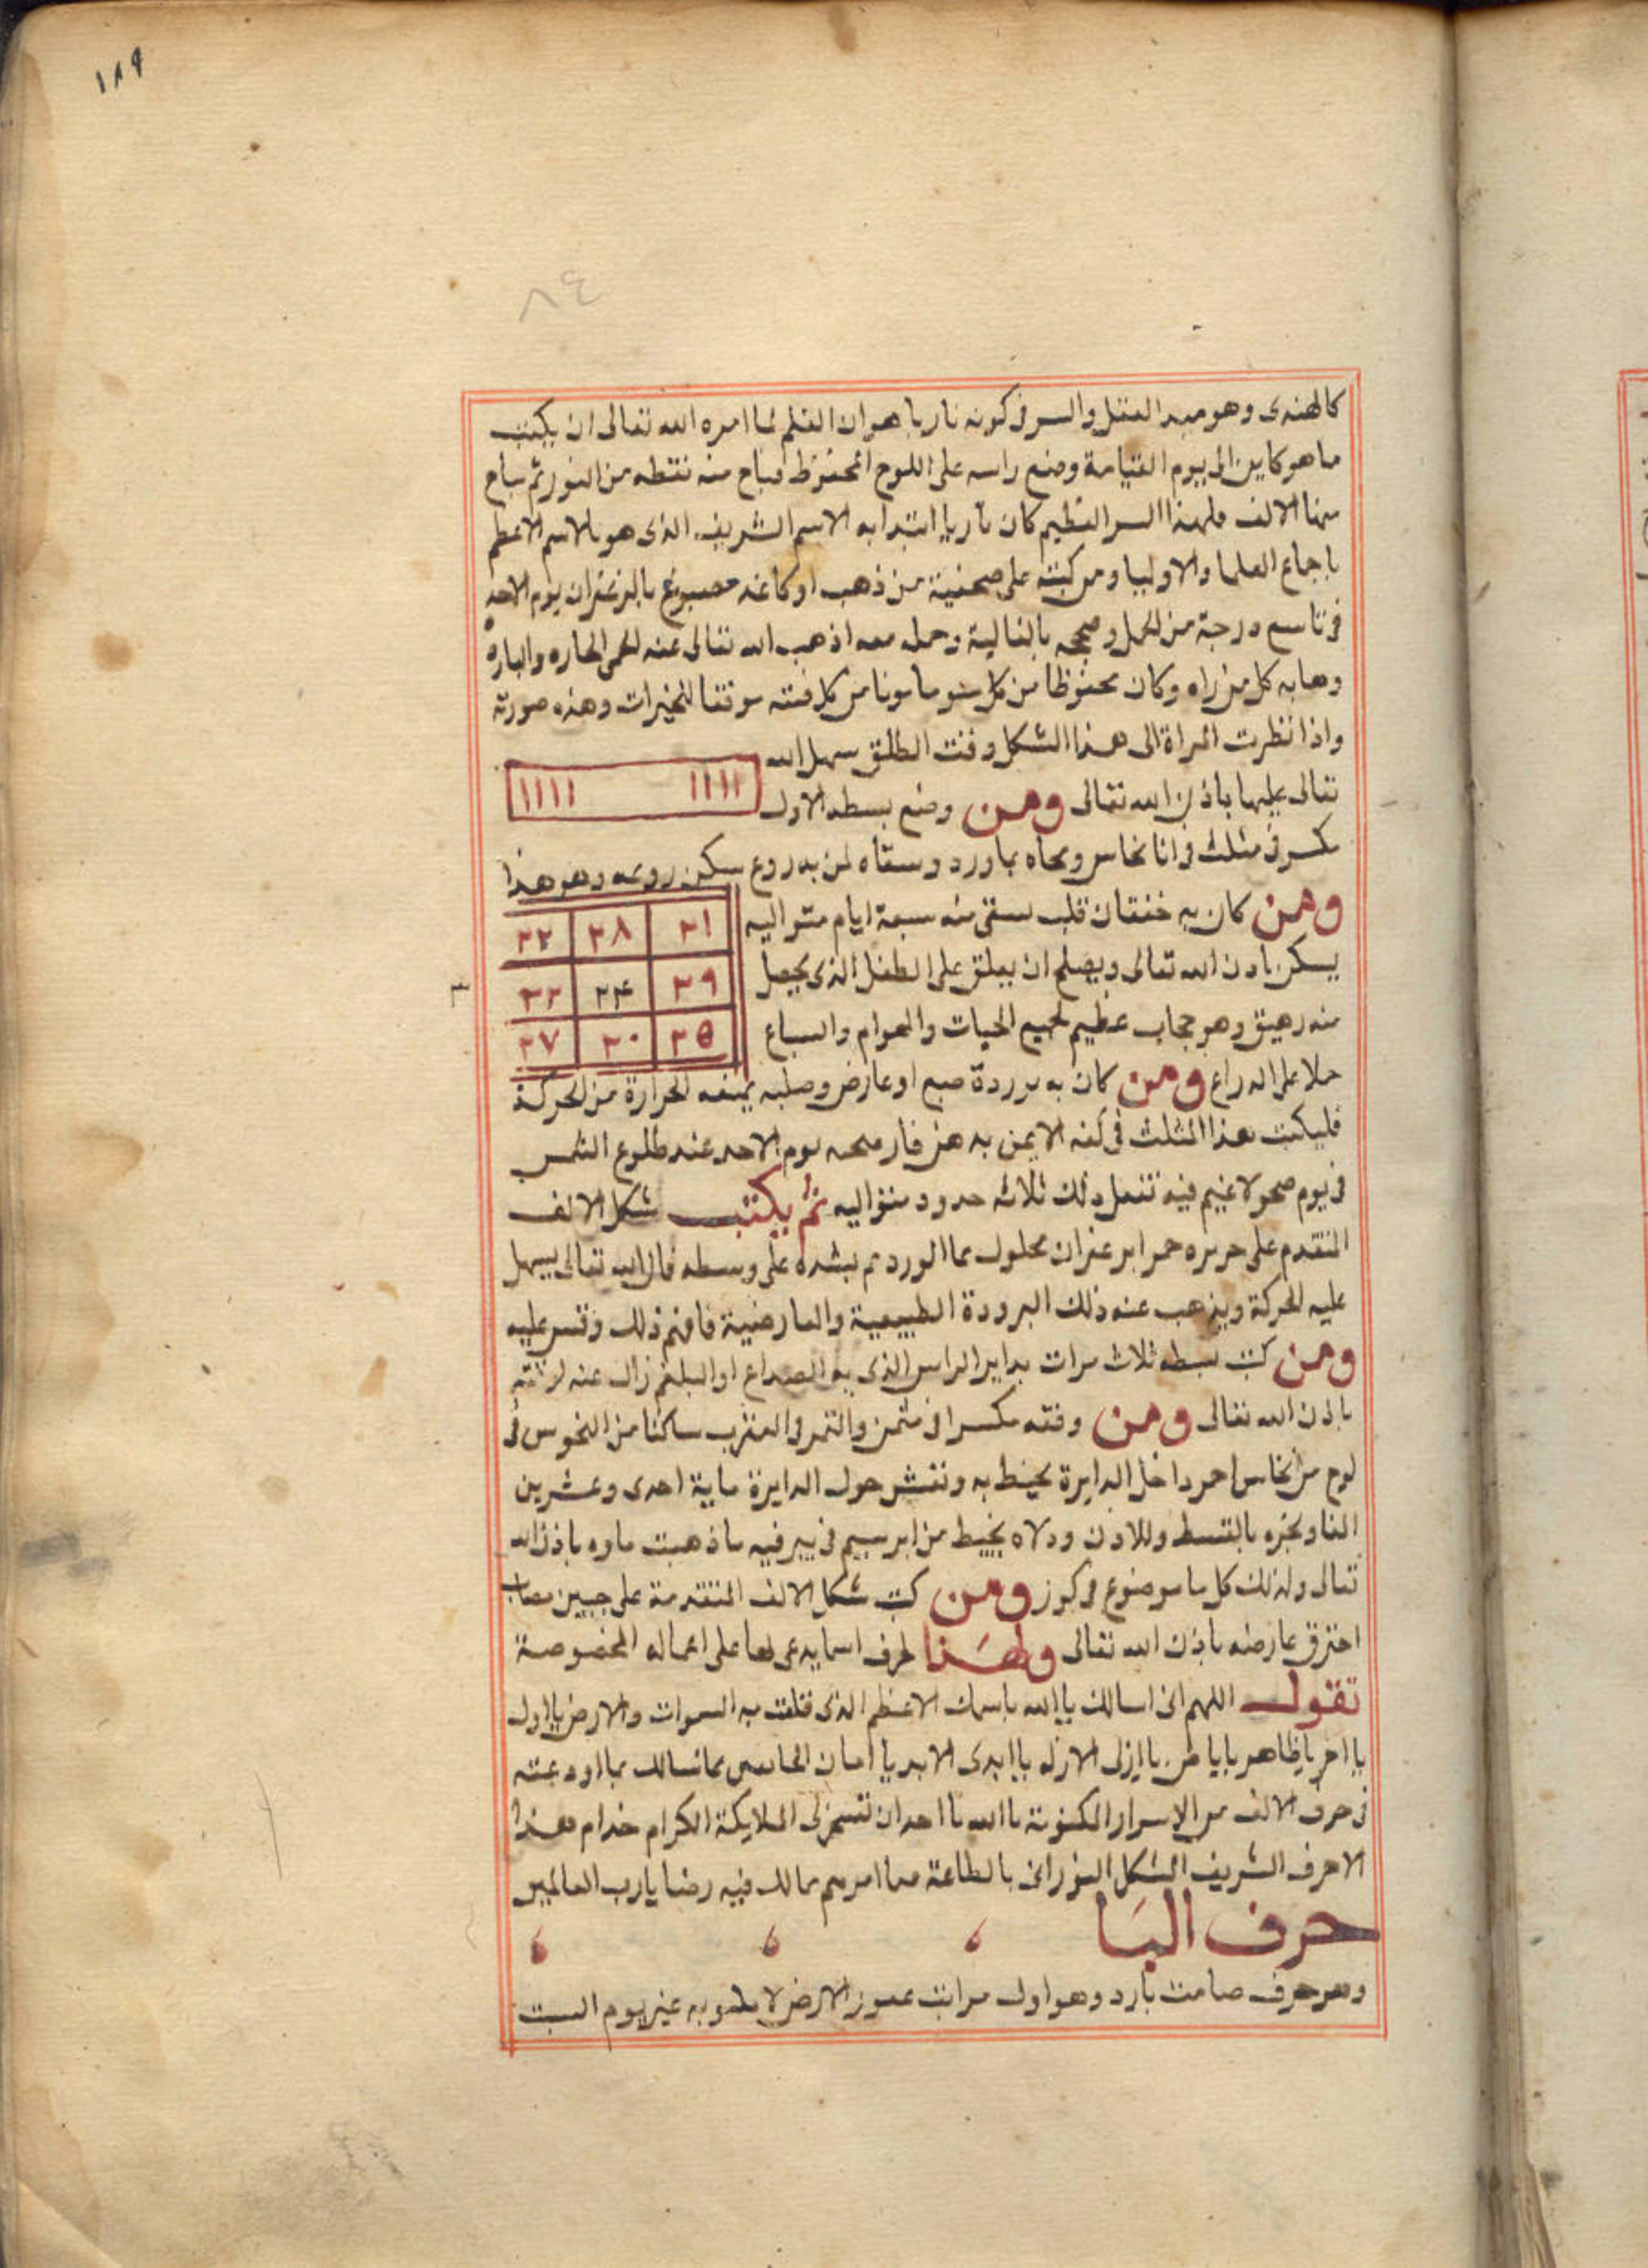 ١٨٩
٨٤
كالهندى وهو مبدا العقل والسر فى كونه ناريا هو ان القلم لما امره الله تعالى ان يكتب
ما هو كاين الى يوم القيامة وضع راسه على اللوح المحفوظ فباح منه نقطه من النور ثم ساح
منها الالف فلهذا السر العظيم كان ناريا ابتدا به الاسم الشريف الذى هو الاسم الاعظم
باجماع العلما والاوليا ومن كتبه على صحفية من ذهب او كاغد مصبوغ بالزعفران يوم الاحد
فى تاسع درجة من الحمل و بالغالية وحمله معه اذهب الله تعالى عنه الحمى الحاره والبارده
وهابه كل من راه وكان محفوظا من كل سو مامونا من كل فتنه موفقا للخيرات وهذه صورته
واذا نظرت المراة الى هذا الشكل وقت الطلق سهل الله
تعالى عليها باذن الله تعالى ومن وضع بسطه الاول
١١١١ ١١١١
مكسر فى مثلث فى انا نحاس ومحاه بماورد وسقاه لمن به روع سكن روعه وهو هذا
ومن كان به خفقان قلب سقى منه سبعة ايام متواليه
يسكن باذن الله تعالى ويصلح ان يعلق على الطفل الذى يحصل
منه رهيق وهو حجاب عظيم لجميع الحيات والهوام والسباع
٣١ ٣٨ ٣٣
٣٩ ٣۴ ٣٢
٣٥ ٣٠ ٣٧
حملا على الدراع ومن كان به برردة صبع او عارض وصلبه يمنعه الحرارة من الحركة
فليكتب هذا المثلث فى كفه الايمن به يوم الاحد عند طلوع الشمس
فى يوم صحو لا غيم فيه تفعل ذلك ثلاثه حدود متواليه ثم يكتب شكل الالف
المتقدم على حريره حمرا بزعفران محلول بما الورد ثم يشده على وسطه فان الله تعالى يسهل
عليه الحركة ويذهب عنه ذلك البرودة الطبيعية والعارضية فافهم ذلك وقس عليه
ومن كتب بسطه ثلاث مرات بداير الراس الذى به الصداع او البلغم زال عنه لوقته
باذن الله تعالى ومن وفقه مكسرا فى مثمن والقمر فى العقرب ساكنا من النحوس فى
لوح من نحاس احمر داخل الدايرة يحيط به ونقش حول الدايرة ماية احدى وعشرين
الفا وبخره بالقسط واللادن ودلاه بخيط من ابرسيم فى بير فيه ما ذهبت ماوه باذن الله
تعالى ولذلك كل ما موضوع فى كوز ومن كتب شكل الالف المتقدمة على جبين مصاب
احترق عارضه باذن الله تعالى ولهذا الحرف اسما يدعى بها على اعماله المخصوصة
تقول اللهم انى اسالك يا الله باسمك الاعظم الذى قامت به السموات والارض يا اول
يا اخر يا ظاهر يا باطن يا ازلى الازل يا ابدى الابد يا امان الخايفين بما نسالك بما اودعته
فى حرف الالف من الاسرار المكنونة يا الله يا احد ان تسخر لى الملايكة الكرام خدام هذا
الاحرف الشريف الشكل النورانى بالطاعة مما امرهم بما لك فيه رضا يارب العالمين
حرف البا
وهو حرف صامت بارد وهو اول مراتب عنصر الارض لا غير يوم السبت